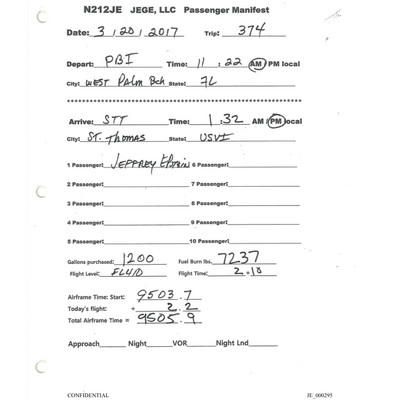 N212JE JEGE, LLC Passenger Manifest
Date: 3/20/2017 Trip: 374
Depart: PBI Time: 11:22 AM/PM local
City: West Palm Bch State: FL
Arrive: STT Time: 1:32 AM/PM local
City: St. Thomas State: USVI
1 Passenger: Jeffrey Epstein 6 Passenger:
2 Passenger: 7 Passenger:
3 Passenger: 8 Passenger:
4 Passenger: 9 Passenger:
5 Passenger: 10 Passenger:
Gallons purchased: 1200 Fuel Burn lbs. 7237
Flight Level: Flight Time: 2+10
Airframe Time: Start: 9503.7
Today's flight: + 2.2
Total Airframe Time = 9505.9
Approach Night VOR Night Lnd
CONFIDENTIAL JE_000295